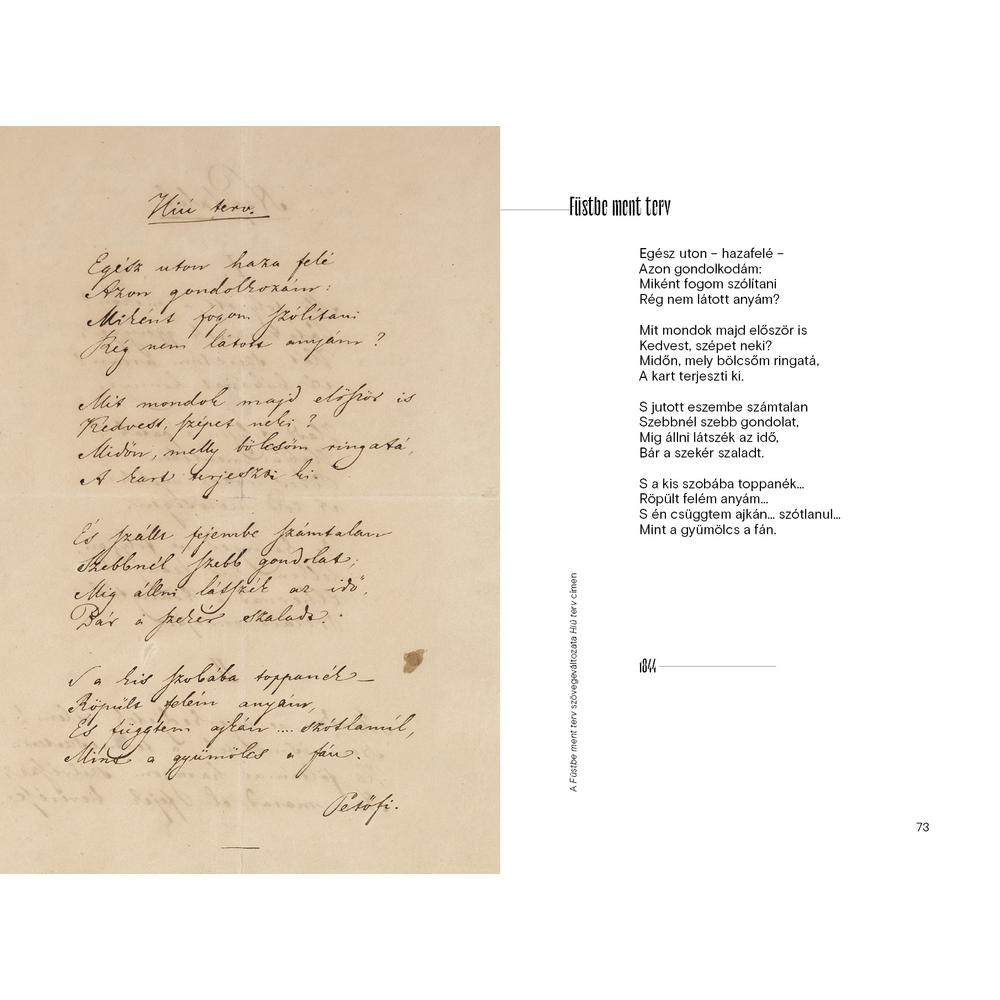 Hiú terv.
Egész uton haza felé
Azon gondolkozám:
Miként fogom szólítani
Rég nem látott anyám?
Mit mondok majd először is
Kedvest, szépet neki?
Midőn, melly bölcsőm ringatá,
A kart terjeszti ki.
És szállt fejembe számtalan
Szebbnél szebb gondolat,
Mig állni látszék az idő,
Bár a szekér szaladt.
S a kis szobába toppanék –
Röpült felém anyám,
És függtem ajkán .... szótlanúl,
Mint a gyümölcs a fán.
Petőfi.
Füstbe ment terv
Egész uton – hazafelé –
Azon gondolkodám:
Miként fogom szólítani
Rég nem látott anyám?
Mit mondok majd először is
Kedvest, szépet neki?
Midőn, mely bölcsőm ringatá,
A kart terjeszti ki.
S jutott eszembe számtalan
Szebbnél szebb gondolat,
Mig állni látszék az idő,
Bár a szekér szaladt.
S a kis szobába toppanék...
Röpült felém anyám...
S én csüggtem ajkán... szótlanul...
Mint a gyümölcs a fán.
A Füstbe ment terv szövegeváltozata Hiú terv címen
1844
73